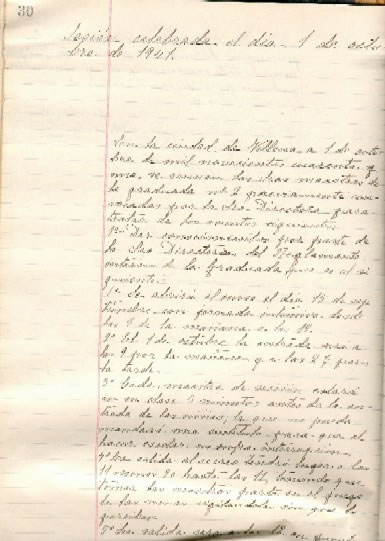 30
Sesión celebrada el día 1 de octu
bre de 1941.
En la ciudad de Villena a 1 de octu
bre de mil novecientos cuarenta y
uno, se reunen las Sras maestras de
la graduada nº 2 previamente con
vocadas por la Sra Directora para
tratar de los asuntos siguientes:
1º Dar conocimiento por parte de
la Sra Directora del Reglamento
interno de la Graduada que es el si
guiente:
1º Se abrirá el curso el día 15 de sep
tiembre con jornada intensiva desde
las 9 de la mañana a la 1
2º El 1 de octubre la entrada será a
las 9 por la mañana y a las 2 para
la tarde.
3º Cada maestra de sección estará
en su clase 5 minutos antes de la en
trada de las niñas, la que no pueda
mandará una para que el
hacer escolar no sufra interrupción
4º La salida al recreo tendrá lugar a las
11 menos 20 hasta las 11,
las maestras parte en el juego
de las vigilando sin que lo
5º La salida será a las 12